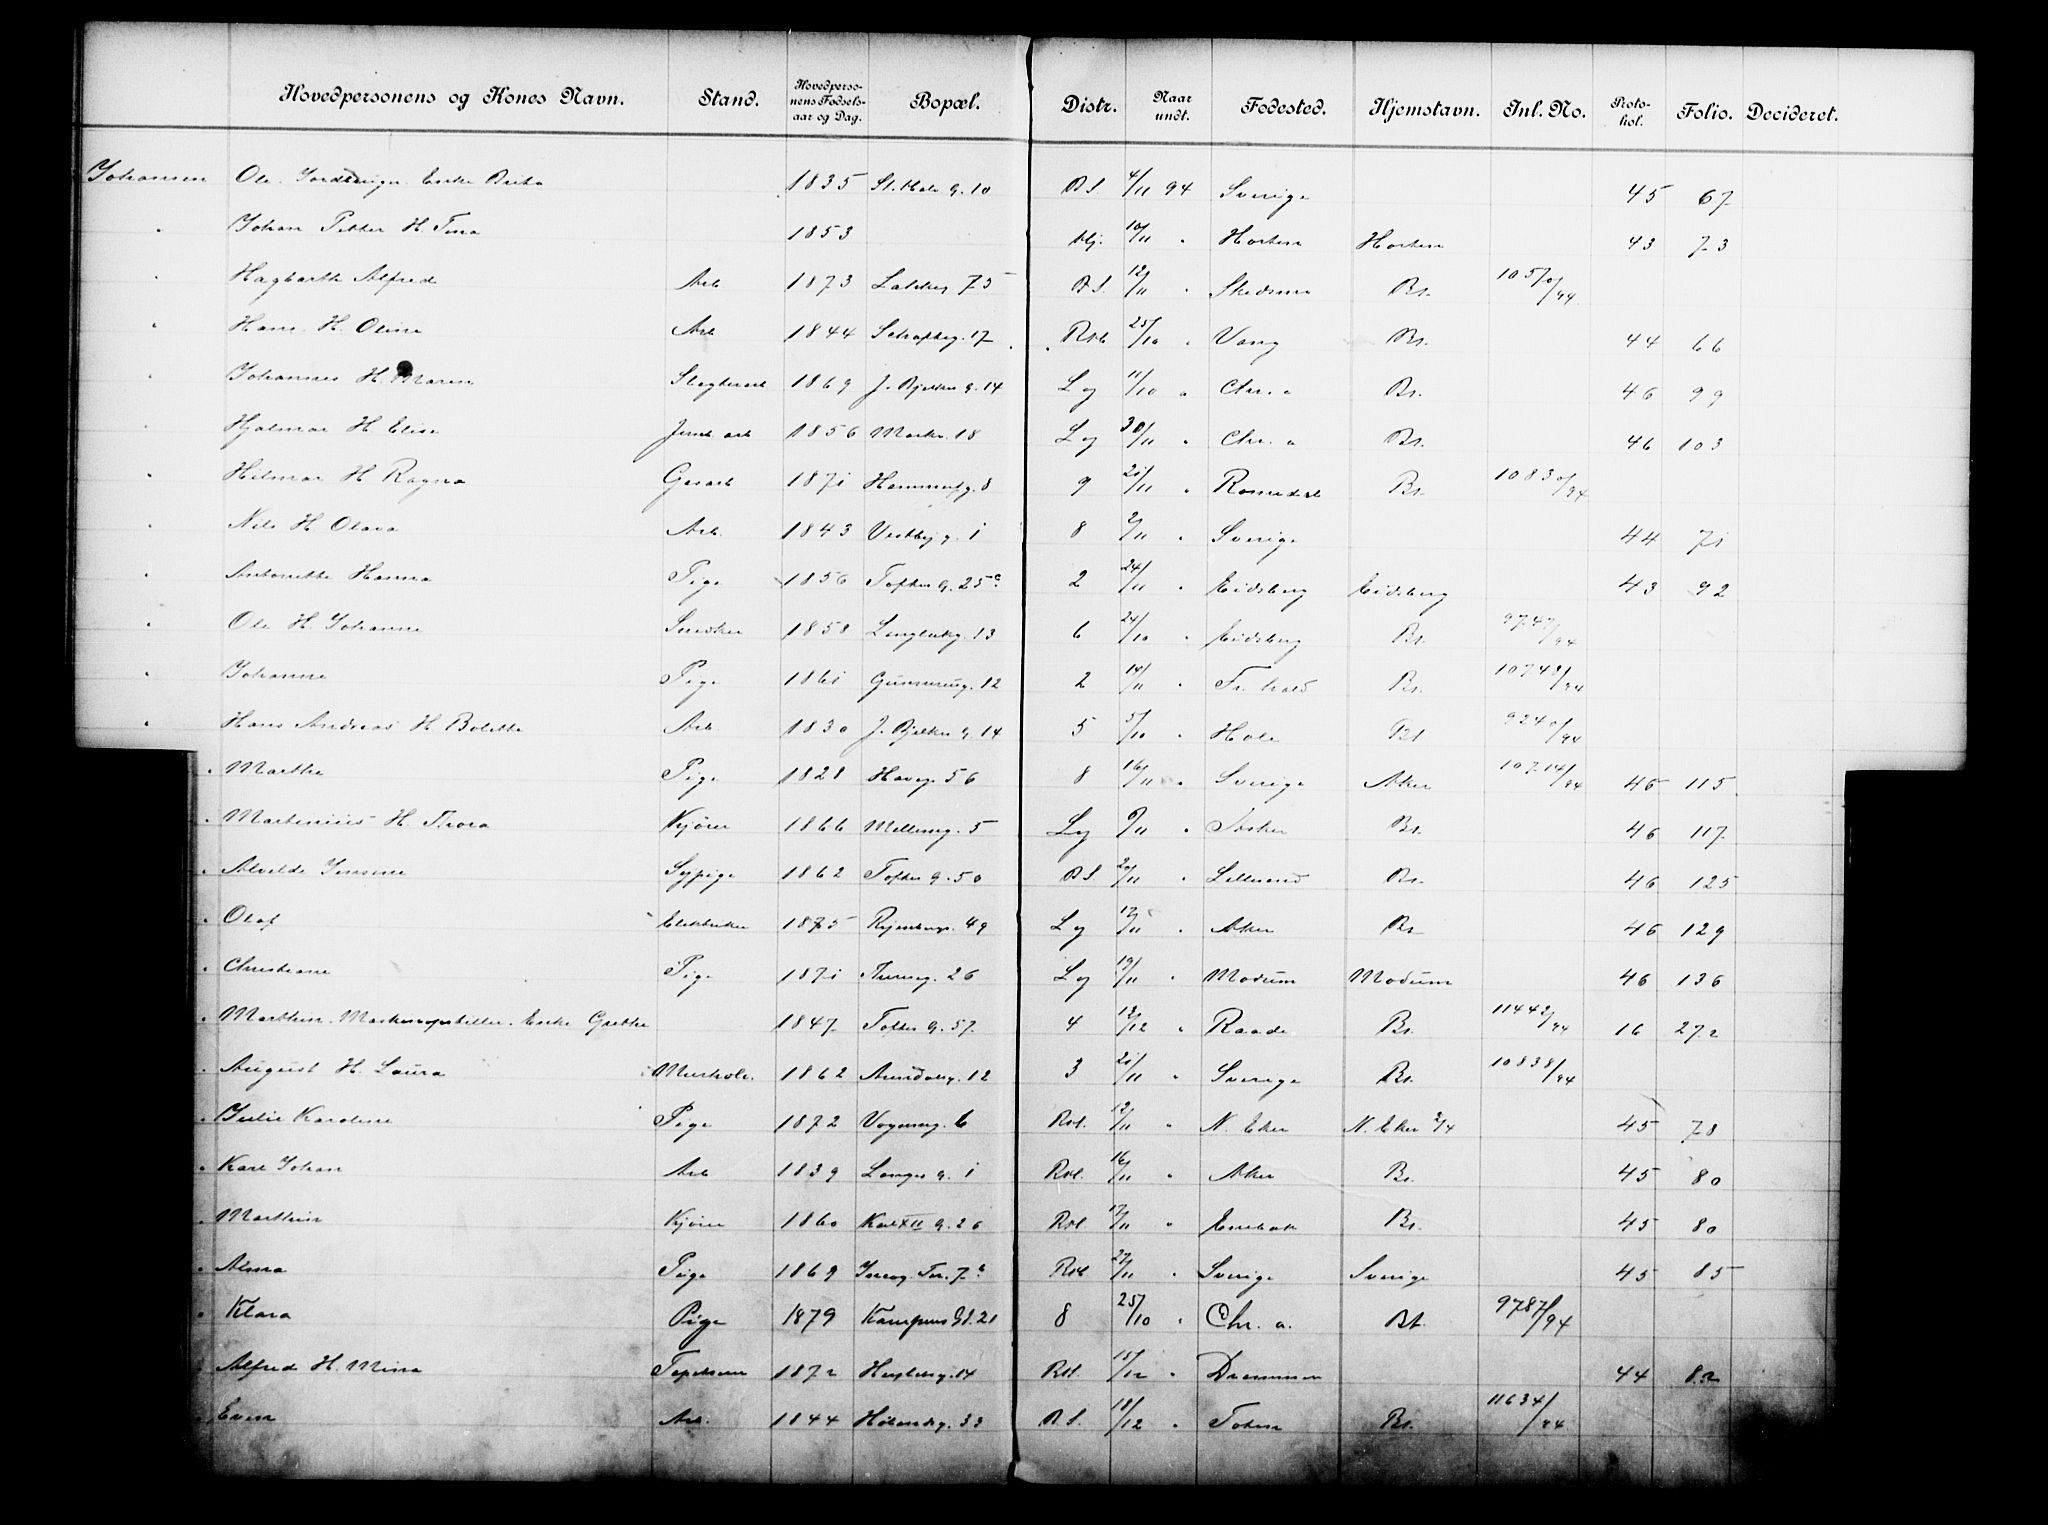 Hovedpersonens og Kones Navn. Stand. Hovedpersonens Fødselsaar og Dag. Bopæl. Distr. Naar undt. Fødested. Hjemstavn. Inl. No. Protokol. Folio. Decideret.
Johansen Ole Enke 1835 St. Hals g. 10 B S. 4/11 94 Sverige 45 67
" Johan Petter H. Tina 1853 Hj. 10/11 " Horten Horten 43 73
" Hagbarth Alfred Arb 1873 Lakkeg 75 B S. 12/11 " Skedsmo Br. 1057 0/94
" Hans H. Oline Arb 1844 Schaftteg. 17 Rvl 25/10 " Vang Br. 44 66
" Johannes H. Maren Slagterarb 1869 J. Bjelkes g. 14 Lg 11/10 " Chr. a Br. 46 99
" Hjalmar H. Elise Jernb arb 1856 Markv. 18 Lg 30/11 " Chr. a Br. 46 103
" Hilmar H Ragna Gasarb 1871 Hammerfg. 8 9 21/11 " Romedal Br. 1083 0/94
" Nils H. Olava Arb. 1843 Vestbyg. 1 8 2/11 " Sverige 44 71
" Antonette Hanna Pige 1856 Toftes g. 25 c. 2 24/11 " Eidsberg Eidsberg 43 92
" Ole H. Johanne Snedker 1858 Langleikg. 13 6 24/10 " Eidsberg Br. 974 /94
" Johanne Pige 1861 Gunnerusg. 12 2 14/11 " Fr. hald Br. 1074 /94
" Hans Andreas H Bolette Arb. 1830 J. Bjelkes g. 14 5 5/10 " Hole Br 924 0/94
" Marthe Pige 1828 Haveg. 56 8 16/11 " Sverige Aker 1071 4/94 46 115
" Martinius H. Thora Kjører 1866 Møllerg. 5 Lg 9/11 " Asker Br. 46 117
" Alvilde Jensine Sypige 1862 Toftes g. 50 B S. 20/11 " Lillesand Br. 46 125
" Olaf Elektriker 1875 Ryenbergv. 49 Lg 17/11 " Aker Br 46 129
" Christiane Pige 1871 Thereseg. 26 Lg 19/11 " Modum Modum 46 136
" Marthin Enke Grethe 1847 Toftes g. 57 4 12/12 " Raade Br. 1144 2/94 16 272
" August H. Laura Murhdl. 1862 Arendalsg. 12 3 21/11 " Sverige Br. 1083 8/94
" Julie Karoline Pige 1872 Vognmg. 6 Rvl. 12/11 " N. Eker N. Eker 2/4 45 78
" Karl Johan Arb 1839 Langes g. 1 Rvl. 16/11 " Aker Br. 45 80
" Marthin Kjører 1860 Karl XII g. 26 Rvl 17/11 " Enebak Br. 45 80
" Alma Pige 1869 Rvl 27/11 " Sverige Sverige 45 85
" Klara Pige 1879 Kampens Gd. 21 8 25/10 " Chr. a. Br. 978 7/94
" Alfred H. Mina Tapetserer 1872 Herslebsg. 14 Rvl. 15/12 " Drammen 44 82
" Even Arb. 1844 Hølandsg. 33 B S. 18/12 " Toten Br. 1163 4/94